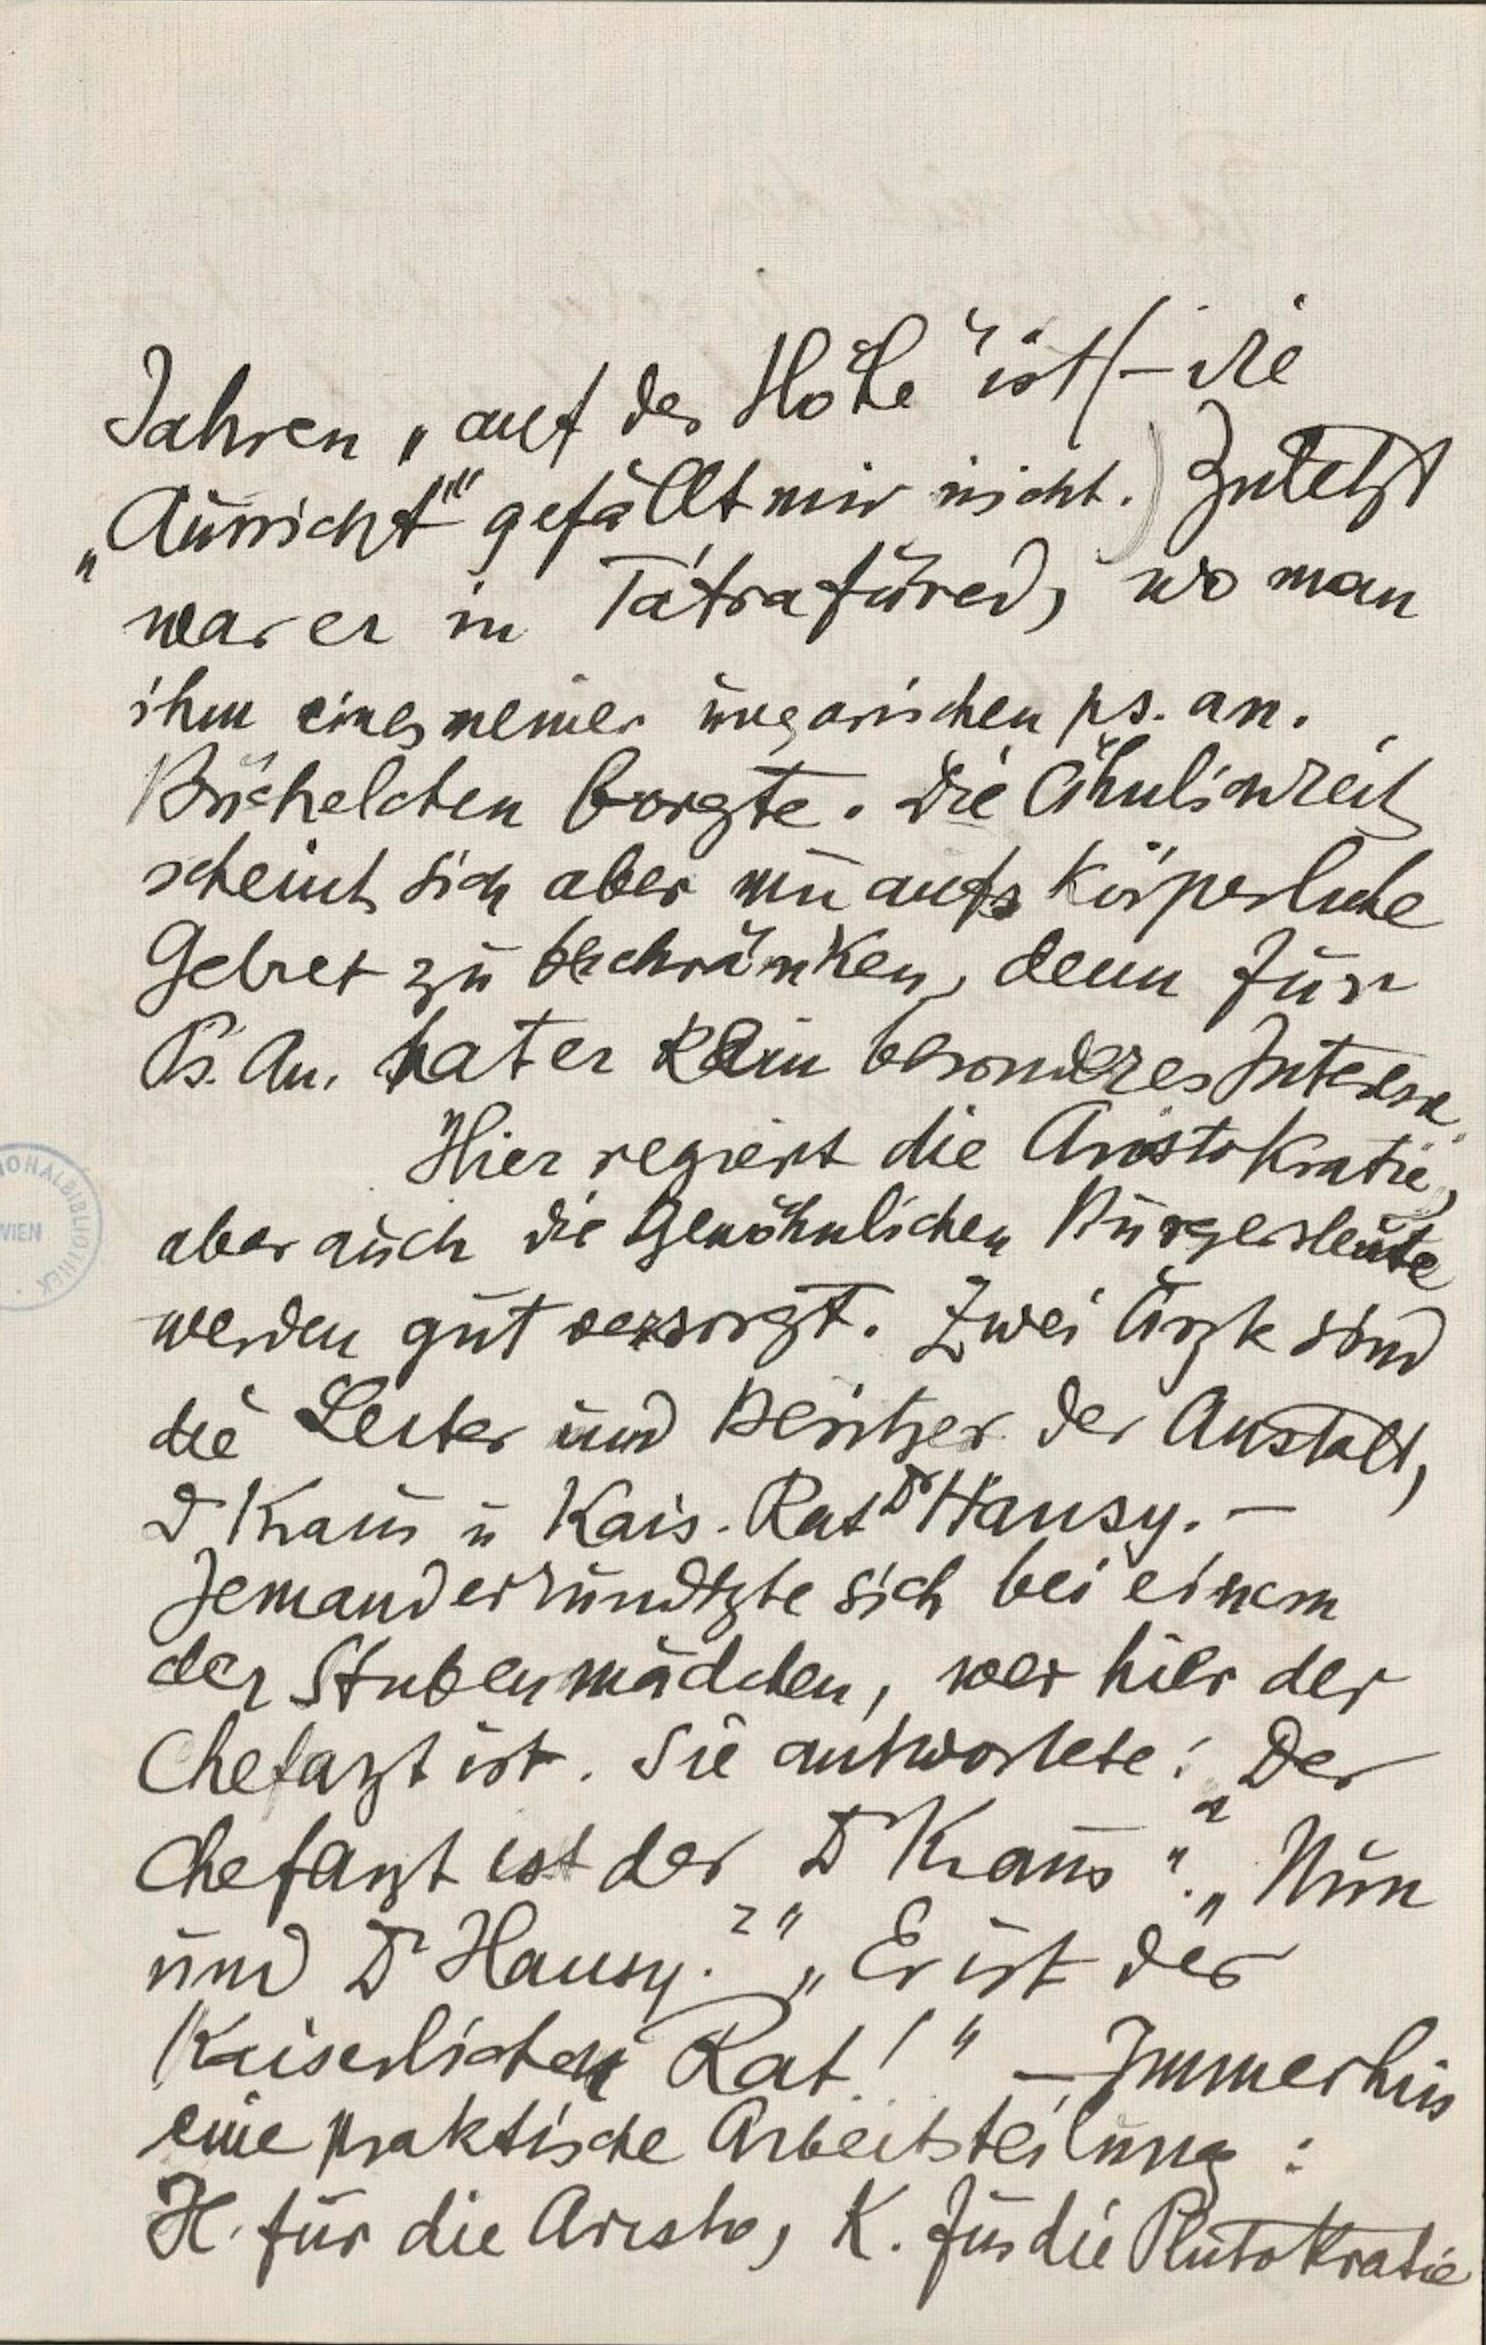 Jahren „auf der Höhe“ ist (– die
„Aussicht“ gefällt mir nicht.) Zuletzt
war er in Tátrafüred, wo man
ihm eines meiner ungarischen ps. an.
Büchelchen borgte. Die Ähnlichkeit
scheint sich aber nur aufs körperliche
Gebiet zu beschränken, denn für
Ps. An. hat er kein besonderes Interesse.
Hier regiert die Aristokratie,
aber auch die gewöhnlichen Bürgersleute
werden gut versorgt. Zwei Ärzte sind
die Leiter und Besitzer der Anstalt,
Dr Kraus u Kais. Rat Dr Hansy. –
Jemand erkundigte sich bei einem
der Stubenmädchen, wer hier der
Chefarzt ist. Sie antwortete: „Der
Chefarzt ist der Dr Kraus“. „Nun
und Dr Hansy?“ „Er ist der
Kaiserlichen Rat!“ – Immerhin
eine praktische Arbeitsteilung:
H. für die Aristo, K. für die Plutokratie
NATIONALBIBLIOTHEK
WIEN